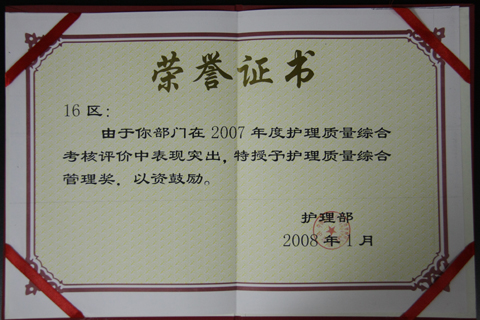 荣誉证书
16区：
由于你部门在2007年度护理质量综合
考核评价中表现突出，特授予护理质量综合
管理奖，以资鼓励。
护理部
2008年1月